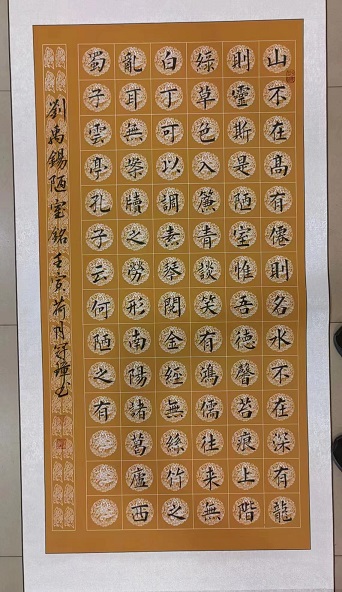 山不在髙有僊則名水不在深有龍
則靈斯是陋室惟吾德馨苔痕上階
綠草色入簾青談笑有鴻儒往来無
白丁可以調素琴閱金經無絲竹之
亂耳無案牘之勞形南陽諸葛廬西
蜀子雲亭孔子云何陋之有
劉禹錫陋室銘壬寅荷月書